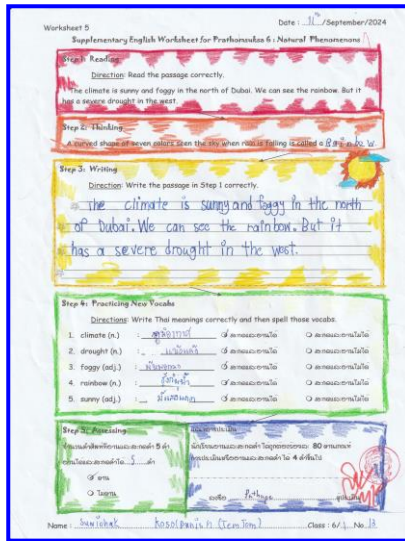 Worksheet 5
Date : 11th /September/2024
Supplementary English Worksheet for Prathomsuksa 6 : Natural Phenomenons
Step 1: Reading
Direction: Read the passage correctly.
The climate is sunny and foggy in the north of Dubai. We can see the rainbow. But it
has a severe drought in the west.
Step 2: Thinking
A curved shape of seven colors seen the sky when rain is falling is called a
Step 3: Writing
Direction: Write the passage in Step 1 correctly.
The climate is sunny and foggy in the north
of Dubai. We can see the rainbow. But it
has a severe drought in the west.
Step 4: Practicing New Vocabs
Directions: Write Thai meanings correctly and then spell those vocabs.
1. climate (n.) : สะกดและอ่านได้ สะกดและอ่านไม่ได้
2. drought (n.) : สะกดและอ่านได้ สะกดและอ่านไม่ได้
3. foggy (adj.) : สะกดและอ่านได้ สะกดและอ่านไม่ได้
4. rainbow (n.) : สะกดและอ่านได้ สะกดและอ่านไม่ได้
5. sunny (adj.) : สะกดและอ่านได้ สะกดและอ่านไม่ได้
Step 5: Assessing
5 คำ
5 คำ
ผ่าน
ไม่ผ่าน
80
4
ลงชื่อ
Name : (TemTom) Class : 6/ No.